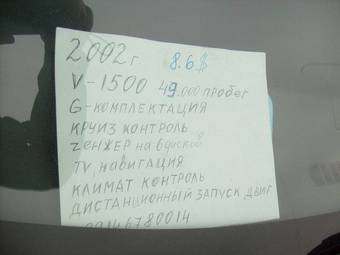 2002г. 8.6$
V-1500 49.000 пробег
G-КОМПЛЕКТАЦИЯ
КРУИЗ КОНТРОЛЬ
ЧЕНЖЕР на 6дисков
TV, навигация
КЛИМАТ КОНТРОЛЬ
ДИСТАНЦИОННЫЙ ЗАПУСК ДВИГ.
89146780014